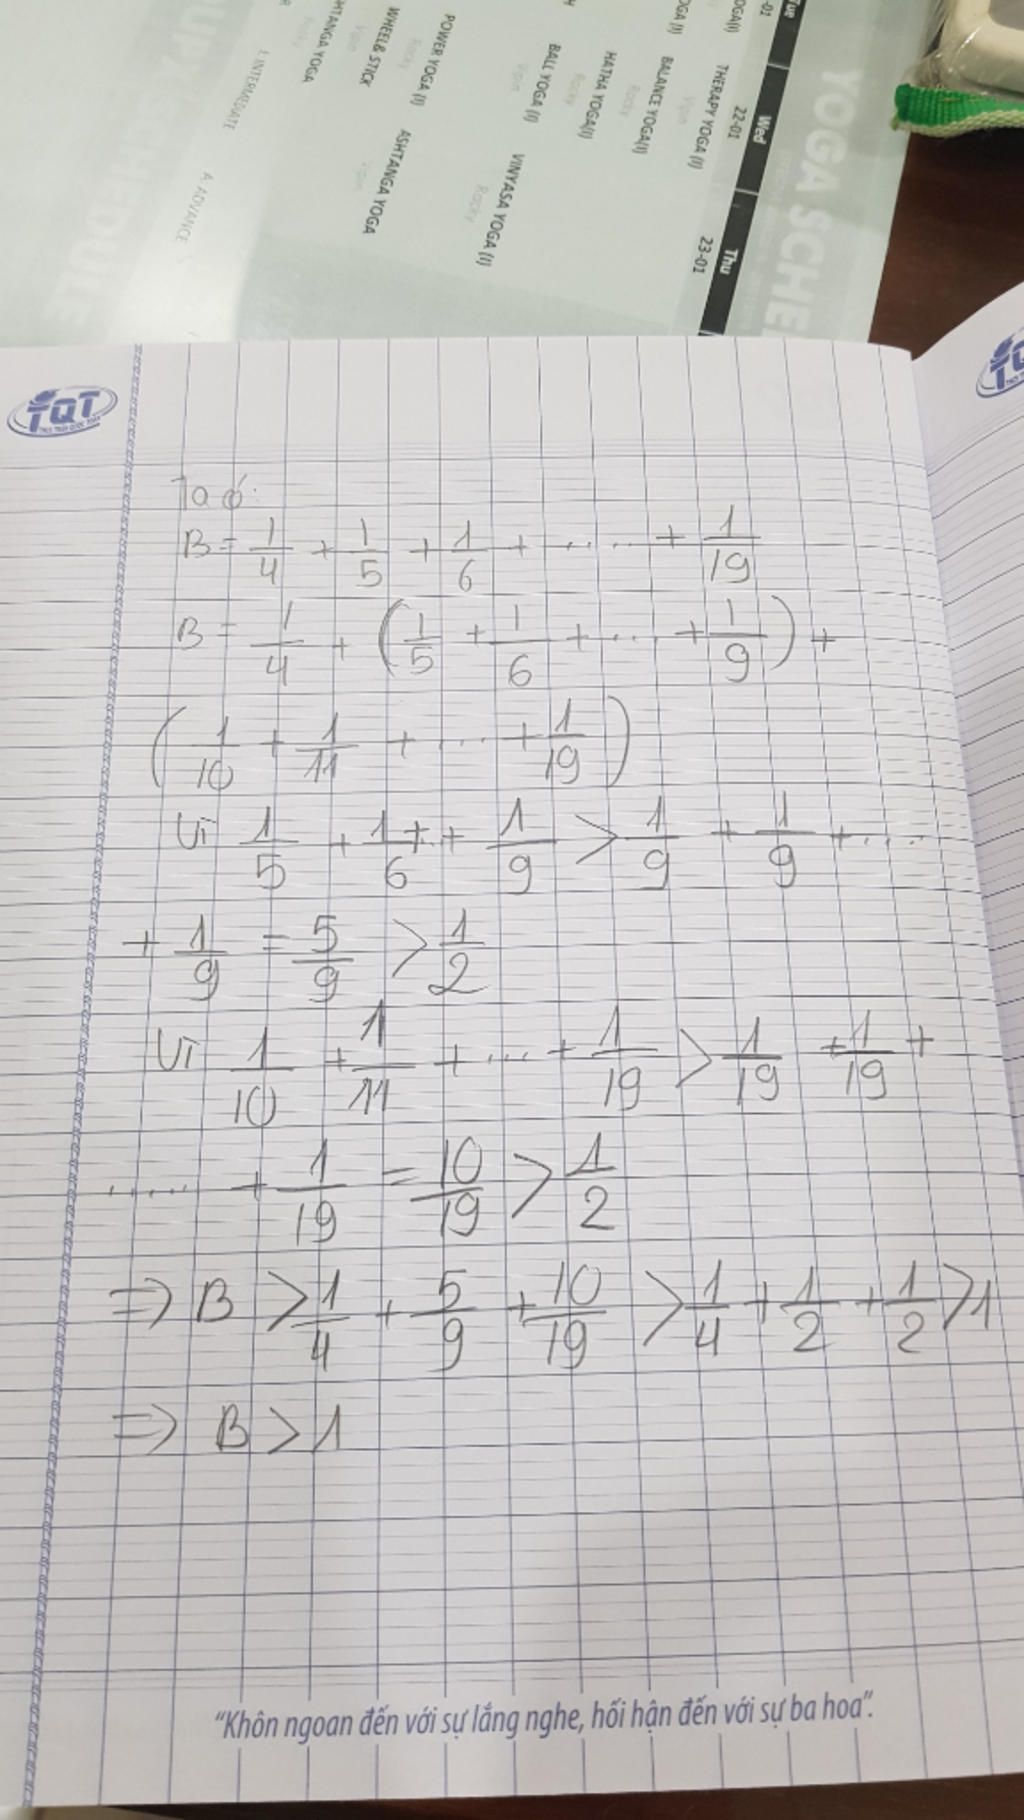 YOGA SCHE
Tue
Wed
Thu
-01
22-01
23-01
OGA(I)
THERAPY YOGA (I)
Vipin
OGA (I)
BALANCE YOGA(I)
Rocky
HATHA YOGA(I)
Rocky
H
BALL YOGA (I)
Vipin
VINYASA YOGA (I)
Rocky
POWER YOGA (I)
Rocky
ASHTANGA YOGA
Vipin
WHEEL& STICK
Vipin
HTANGA YOGA
Rocky
I. INTERMEDIATE
A. ADVANCE
HEDULE
TQT
Ta có:
B = 1/4 + 1/5 + 1/6 + ..... + 1/19
B = 1/4 + (1/5 + 1/6 + ... + 1/9) +
(1/10 + 1/11 + ... + 1/19)
Vì 1/5 + 1/6 + .. + 1/9 > 1/9 + 1/9 + ....
+ 1/9 = 5/9 > 1/2
Vì 1/10 + 1/11 + ... + 1/19 > 1/19 + 1/19 +
..... + 1/19 = 10/19 > 1/2
=> B > 1/4 + 5/9 + 10/19 > 1/4 + 1/2 + 1/2 > 1
=> B > 1
"Khôn ngoan đến với sự lắng nghe, hối hận đến với sự ba hoa".